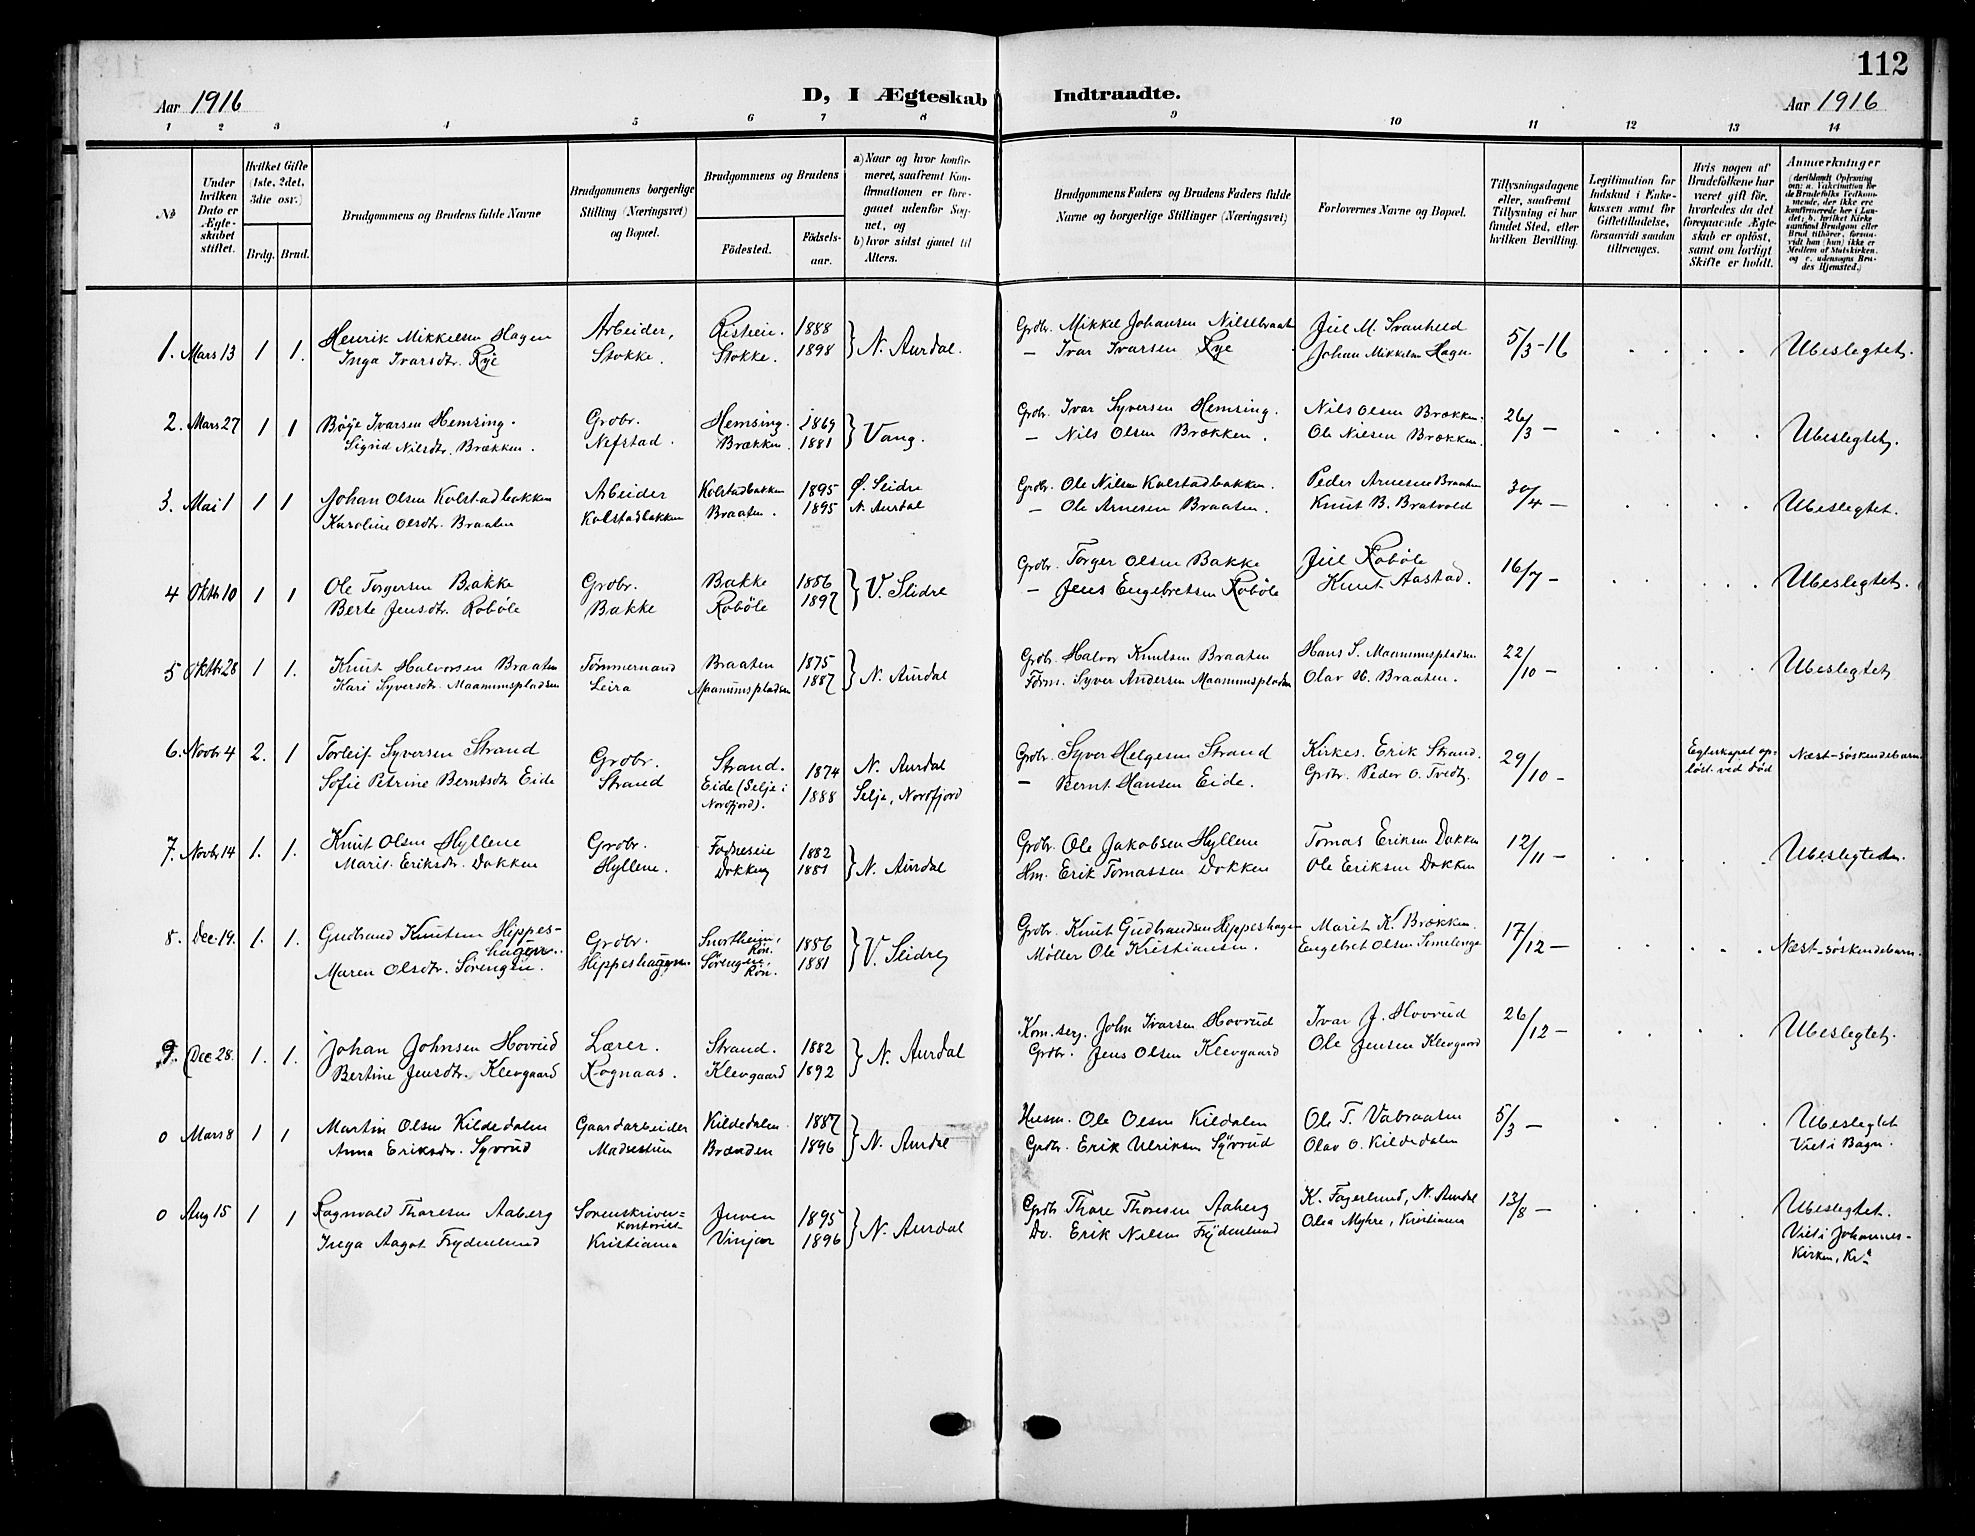 112
Aar 1916
D, I Ægteskab Indtraadte.
Aar 1916
1 2 3 4 5 6 7 8 9 10 11 12 13 14
№
Under hvilken Dato er Ægteskabet stiftet.
Hvilket Gifte (1ste, 2det, 3die osv.)
Brdg. Brud.
Brudgommens og Brudens fulde Navne
Brudgommens borgerlige Stilling (Næringsvei) og Bopæl.
Brudgommens og Brudens
Fødested. Fødselsaar.
a) Naar og hvor konfirmeret, saafremt Konfirmationen er foregaaet udenfor Sognet, og
b) hvor sidst gaaet til Alters.
Brudgommens Faders og Brudens Faders fulde Navne og borgerlige Stillinger (Næringsvei)
Forlovernes Navne og Bopæl.
Tillysningsdagene eller, saafremt Tillysning ei har fundet Sted, efter hvilken Bevilling.
Legitimation for Indskud i Enkekassen samt for Giftetilladelse, forsaavidt saadan tiltrænges.
Hvis nogen af Brudefolkene har været gift før, hvorledes da det foregaaende Ægteskab er opløst, samt om lovligt Skifte er holdt.
Anmærkninger (deriblandt Oplysning om: a. Vakcination for de Brudefolks Vedkommende, der ikke ere konfirmerede her i Landet; b. hvilket Kirkesamfund Brudgom eller Brud tilhører, forsaavidt han (hun) ikke er Medlem af Statskirken, og c. udensogns Brudes Hjemsted.)
1. Mars 13 1 1. Henrik Mikkelsen Hagen Arbeider, Risteie. 1888 } N. Aurdal. Grdbr. Mikkel Johansen Nilsebraat Juel M. Svanheld 5/3-16 Ubeslegtet.
Inga Ivarsdtr. Rye Stokke. Stokke. 1898 — Ivar Ivarsen Rye Johan Mikkelsen Hagen
2. Mars 27 1 1 Bøye Ivarsen Hemsing. Grdbr. Hemsing. 1869 } Vang. Grdbr. Ivar Syversen Hemsing. Nils Olsen Brækken. 26/3 — Ubeslegtet.
Sigrid Nilsdtr. Brækken. Nefstad. Brækken. 1881 — Nils Olsen Brækken. Ole Nilsen Brækken.
3. Mai 1 1 1 Johan Olsen Kolstadbakken Arbeider Kolstadbakken 1895 Ø. Slidre Grdbr. Ole Nilsen Kolstadbakken. Peder Arnesen Braaten 30/4 — Ubeslegtet.
Karoline Olsdtr. Braaten Kolstadbakken Braaten. 1895 N. Aurdal — Ole Arnesen Braaten. Knut B. Bratvold
4 Oktbr 10 1 1 Ole Torgersen Bakke Grdbr. Bakke 1886 } V. Slidre Grdbr. Torger Olsen Bakke Juel Robøle 16/7 — Ubeslegtet.
Berte Jensdtr. Robøle Bakke Robøle 1897 — Jens Engebretsen Robøle Knut Aastad.
5 Oktbr 28 1 1. Knut Halvorsen Braaten Tømmermand Braaten 1875 } N. Aurdal Grdbr. Halvor Knutsen Braaten Hans S. Maanumspladsen 22/10 — Ubeslegtet
Kari Syversdtr. Maanumspladsen Leira Maanumspladsen 1887 Tømm. Syver Andersen Maanumspladsen Olav H. Braaten.
6. Novbr 4 2. 1 Torleif Syversen Strand Grdbr. Strand. 1874 N. Aurdal Grdbr. Syver Helgesen Strand Kirkes. Erik Strand. 29/10 — Egteskapet opløst ved død Næst-søskendebarn
Sofie Petrine Berntsdtr Eide Strand Eide (Selje i Nordfjord). 1888 Selje, Nordfjord — Bernt Hansen Eide. Grdbr. Peder O. Tredt.
7. Novbr 14 1. 1. Knut Olsen Hyllene Grdbr. Fodneseie 1882 } N. Aurdal Grdbr. Ole Jakobsen Hyllene Tomas Eriksen Dokken 12/11 — Ubeslegtet.
Marit Eriksdtr. Dokken Hyllene. Dokken 1881 Hm. Erik Tomassen Dokken Ole Eriksen Dokken
8. Dec. 19. 1. 1. Gudbrand Knutsen Hippeshagen. Grdbr. Snortheim, Røn. 1886 } V. Slidre Grdbr. Knut Gudbrandsen Hippeshagen Marit K. Brækken. 17/12 — Næst-søskendebarn.
Maren Olsdtr. Sørengen. Hippeshagen. Sørengen Røn. 1881 Møller Ole Kristiansen. Engebret Olsen Simelenge
9. Dec 28. 1. 1. Johan Johnsen Hovrud Lærer. Strand. 1882 } N. Aurdal Kom. serg. John Ivarsen Hovrud Ivar J. Hovrud 26/12 — Ubeslegtet.
Bertine Jensdtr. Klevgaard Rognaas. Klevgaard 1892 Grdbr. Jens Olsen Klevgaard Ole Jensen Klevgaard
0 Mars 8 1 1 Martin Olsen Kildedalen Gaardarbeider Kildedalen 1887 } N. Aurdal Husm. Ole Olsen Kildalen Ole T. Vabraaten 5/3 — Ubeslegtet
Anna Eriksdtr. Syvrud Madsestuen Brænden 1896 Grdbr. Erik Ulriksen Syvrud Olav O. Kildedalen Viet i Bagn.
0 Aug 15 1 1 Ragnvald Thoresen Aaberg Sorenskriver-kontorist Juven 1895 } N. Aurdal Grdbr Thore Thoresen Aaberg K. Fagerlund, N. Aurdal 13/8 — Ubeslegtet.
Inga Aagot Frydenlund Kristiania Vinjar 1896 Do. Erik Nilsen Frydenlund Olea Myhre, Kristiania Viet i Johannes-Kirken, Kr.a